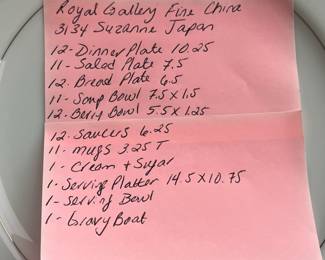 Royal Gallery Fine China
3134 Suzanne Japan
12- Dinner Plate 10.25
11- Salad Plate 7.5
12. Bread Plate 6.5
11- Soup Bowl 7.5 x 1.5
12- Berry Bowl 5.5 x 1.25
12. Saucers 6.25
11- mugs 3.25 T
1- Cream + Sugar
1- Serving Platter 14.5 x 10.75
1- Serving Bowl
1- Gravy Boat